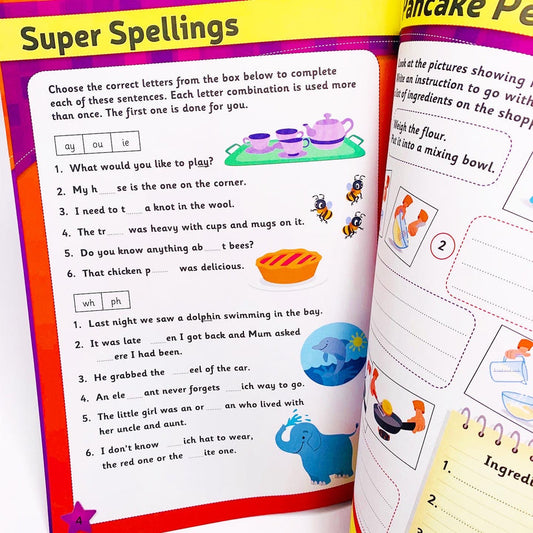 Super Spellings
Choose the correct letters from the box below to complete
each of these sentences. Each letter combination is used more
than once. The first one is done for you.
ay ou ie
1. What would you like to play?
2. My h____se is the one on the corner.
3. I need to t____ a knot in the wool.
4. The tr____ was heavy with cups and mugs on it.
5. Do you know anything ab____t bees?
6. That chicken p____ was delicious.
wh ph
1. Last night we saw a dolphin swimming in the bay.
2. It was late ____en I got back and Mum asked
____ere I had been.
3. He grabbed the ____eel of the car.
4. An ele____ant never forgets ____ich way to go.
5. The little girl was an or____an who lived with
her uncle and aunt.
6. I don't know ____ich hat to wear,
the red one or the ____ite one.
4
Pancake
Look at the pictures showing
Write an instruction to go with
list of ingredients on the
Weigh the flour.
Put it into a mixing bowl.
2
1.
2.
3.